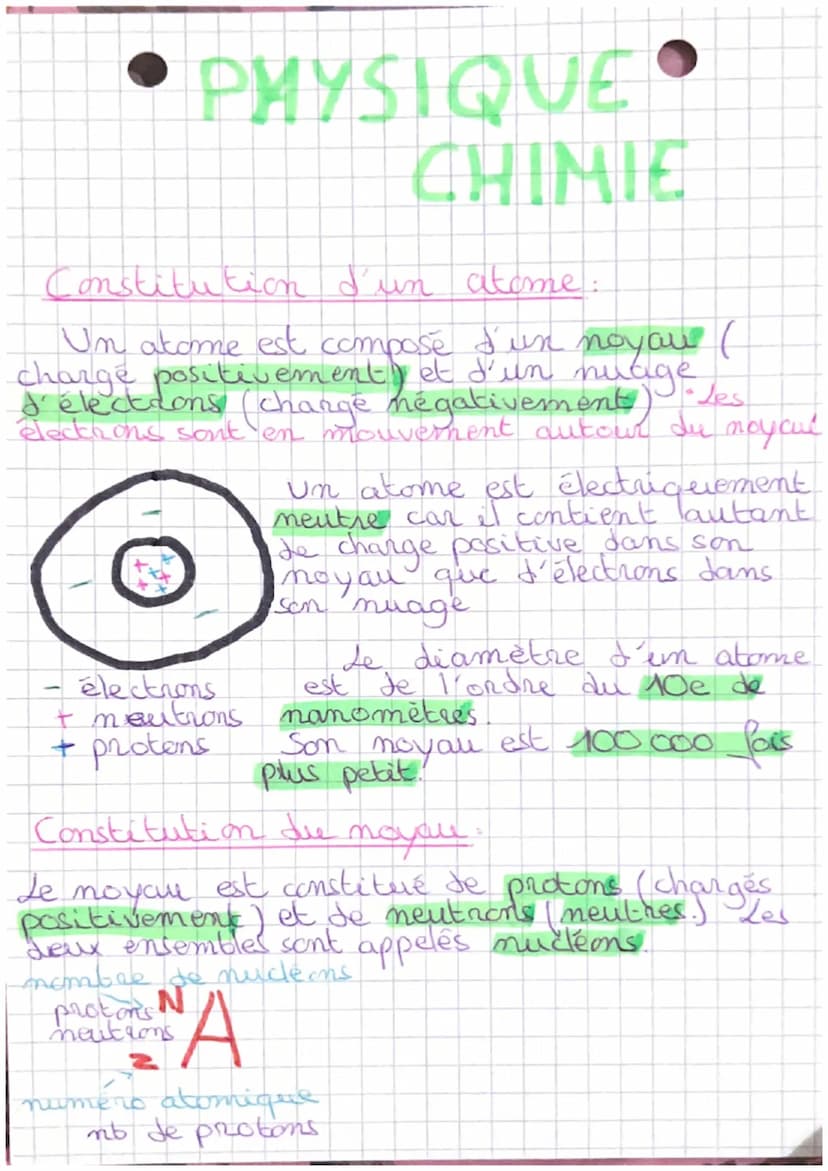 PHYSIQUE
CHIMIE
Constitution d'un atome :
Un atome est composé d'un noyau (
chargé positivement) et d'un nuage
d'électrons (chargé négativement) . Les
électrons sont en mouvement autour du noyau
Un atome est électriquement
neutre car il contient autant
de charge positive dans son
noyau que d'électrons dans
son nuage
Le diamètre d'un atome
est de l'ordre du 10e de
nanomètres.
Son noyau est 100 000 fois
plus petit.
- électrons
+ neutrons
+ protons
Constitution du noyau :
Le noyau est constitué de protons (chargés
positivement) et de neutrons (neutres.) Les
deux ensembles sont appelés nucléons.
nombre de nucléons
protons N
neutrons A
Z
numéro atomique
nb de protons